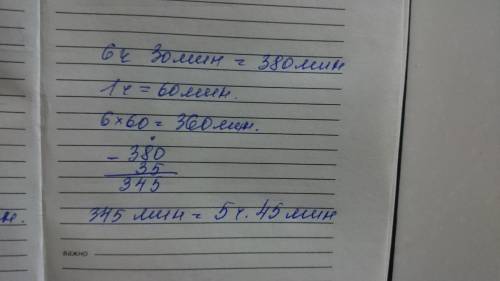 6ч 30мин = 380мин
1ч = 60мин.
6×60 = 360мин.
- 380
35
345
345 мин = 5ч. 45мин
н.
важно